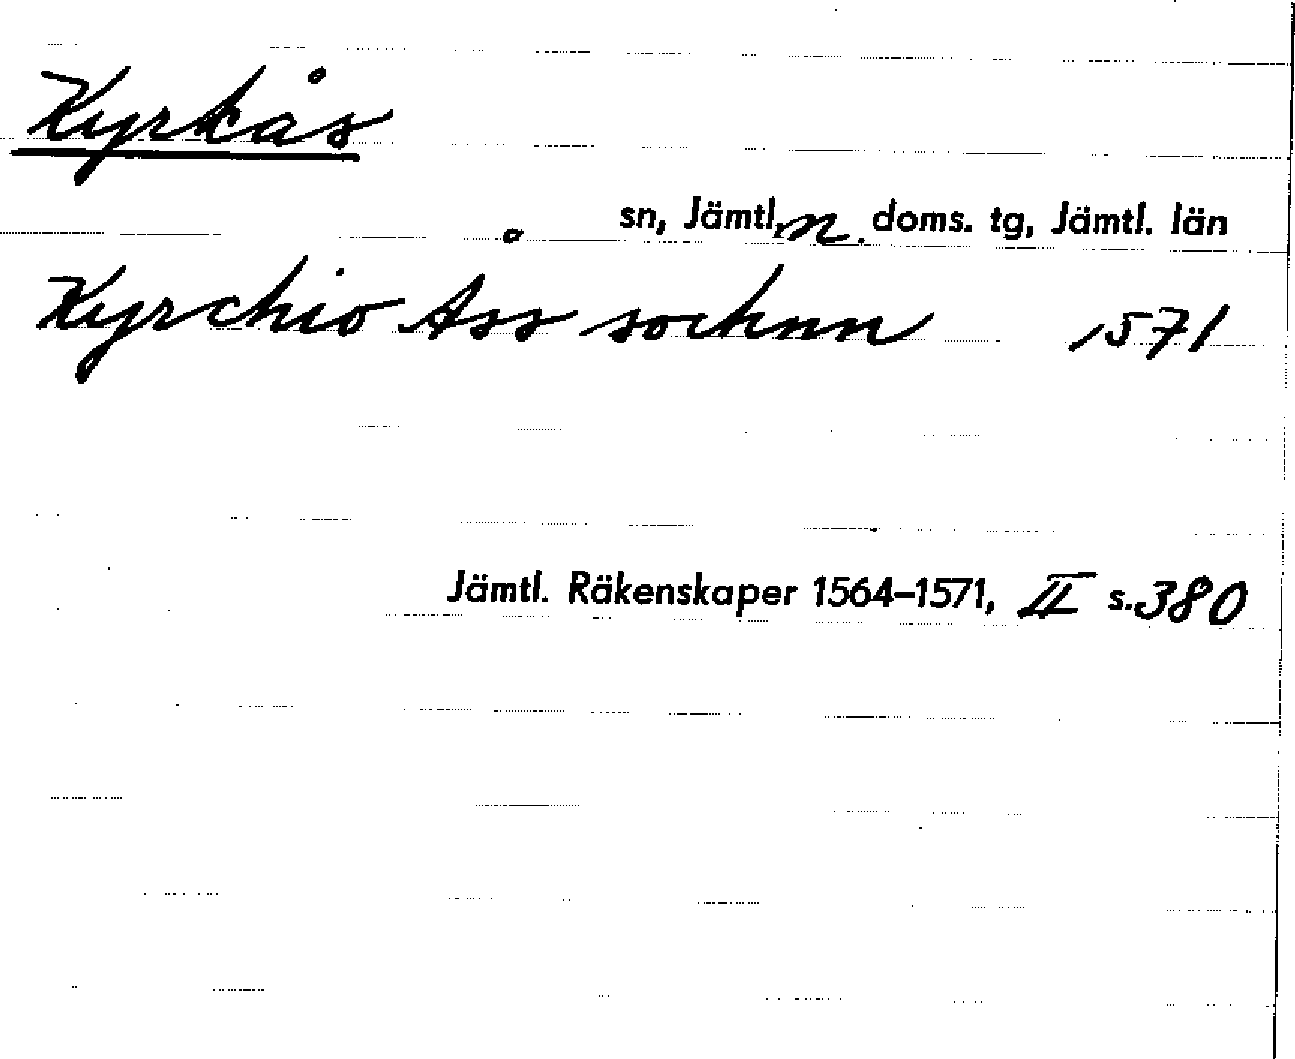 Kyrkås
sn, Jämtl, n. doms. tg, Jämtl. län
Kyrchio Åss sochnn 1571
Jämtl. Räkenskaper 1564–1571, II s. 380